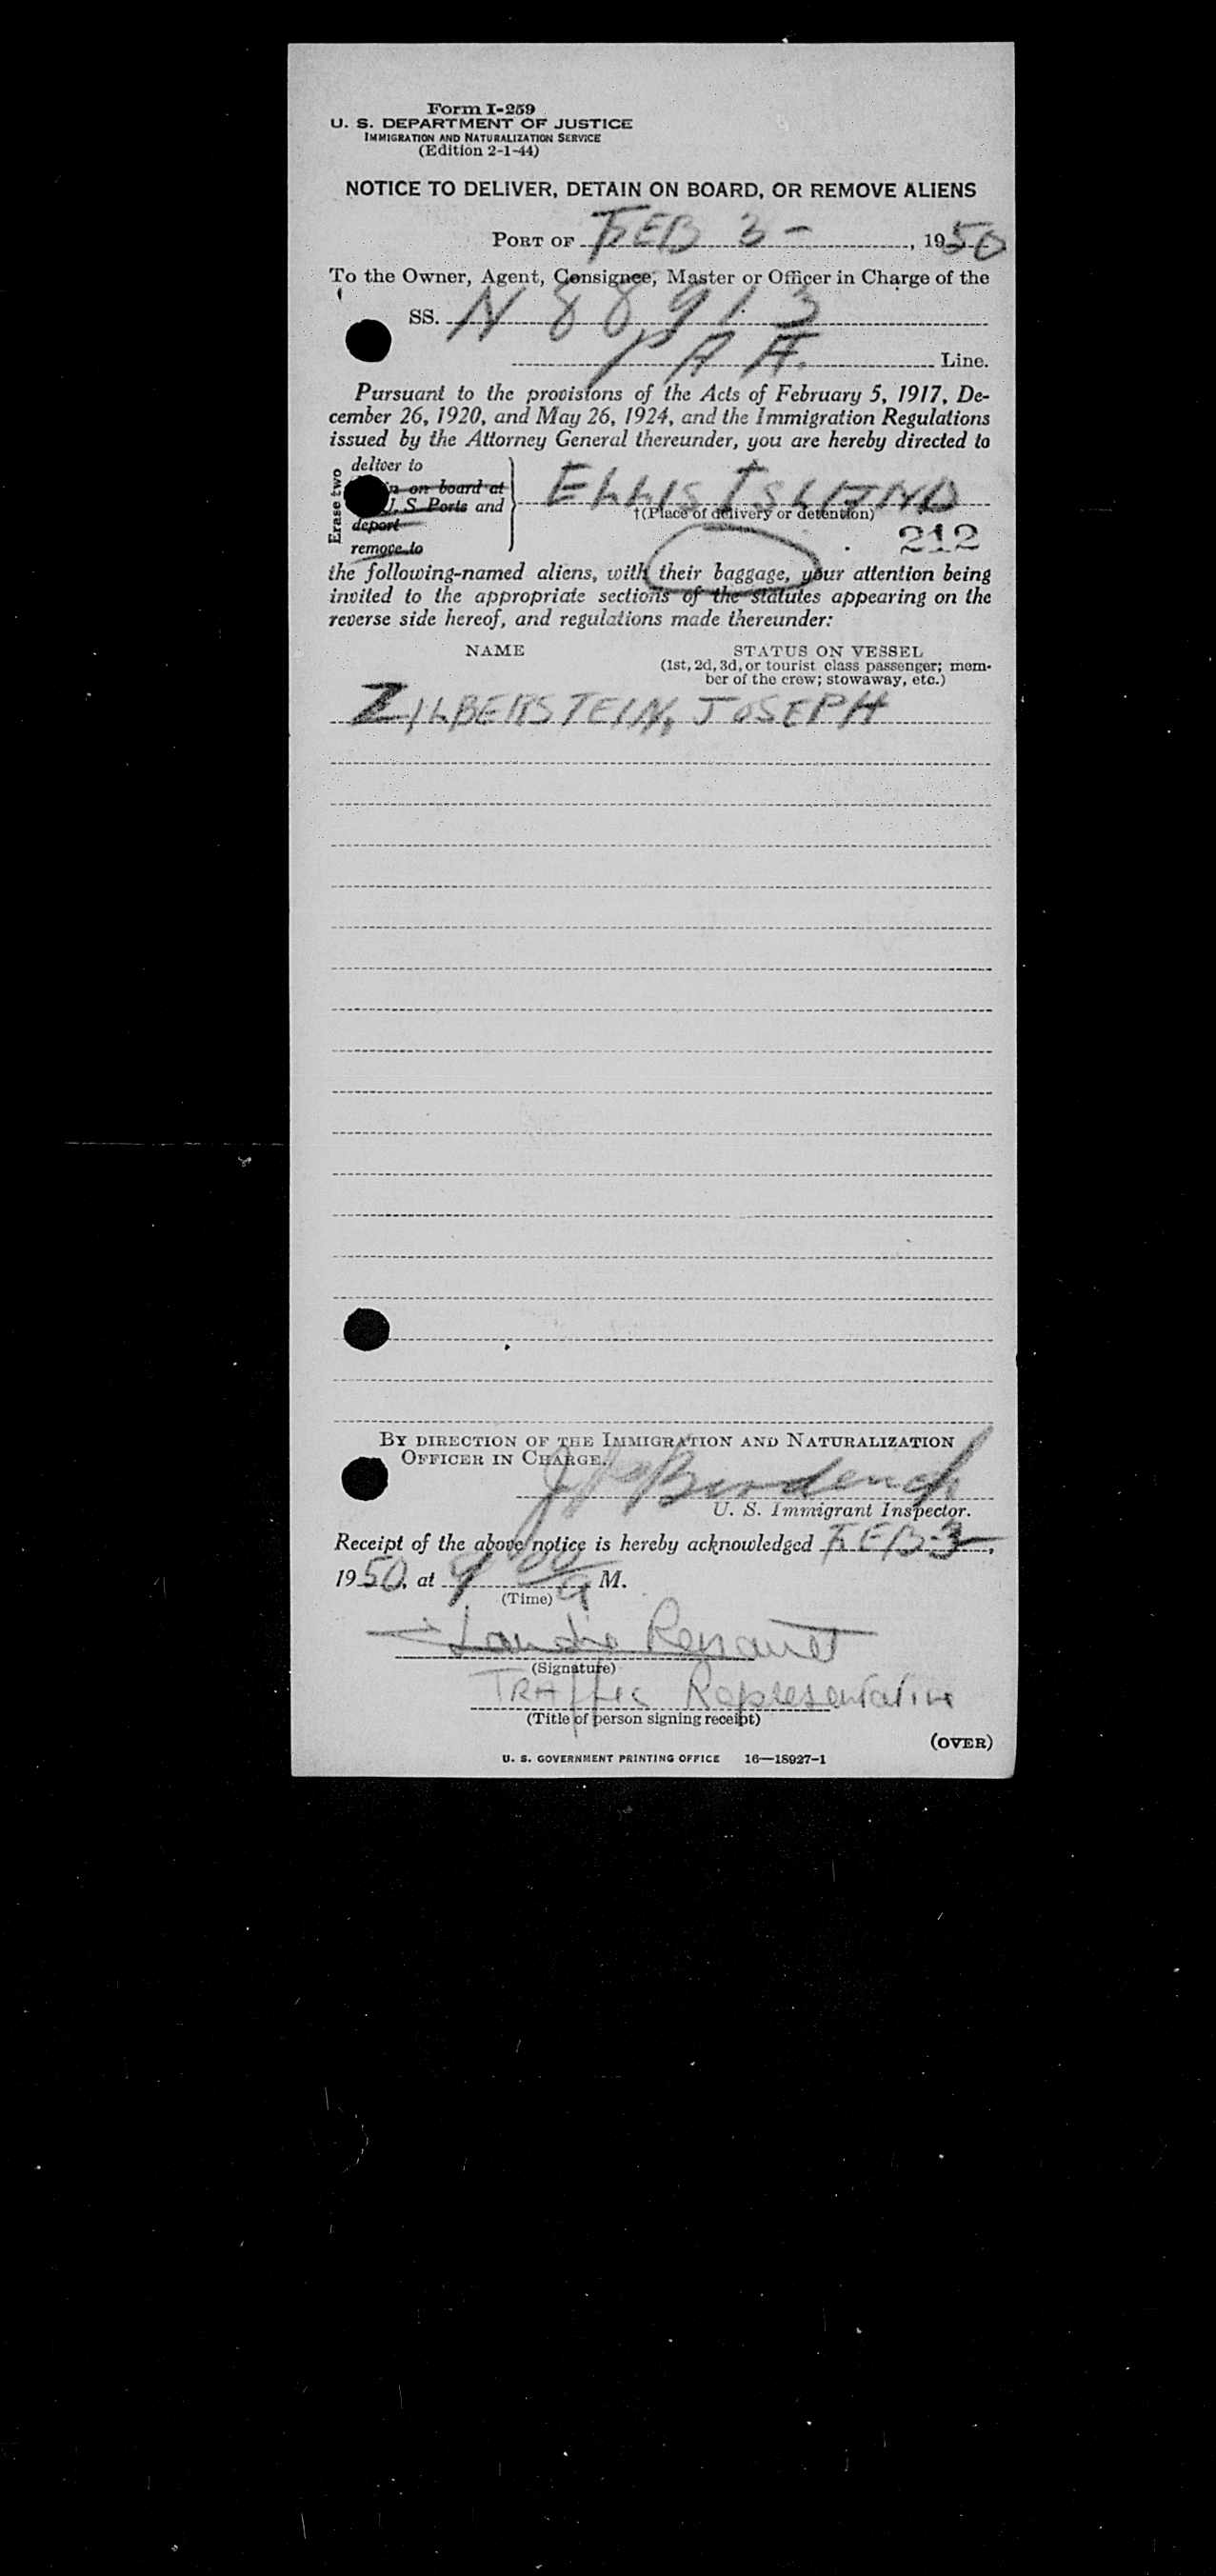 Form I-259
U. S. DEPARTMENT OF JUSTICE
IMMIGRATION AND NATURALIZATION SERVICE
(Edition 2-1-44)
NOTICE TO DELIVER, DETAIN ON BOARD, OR REMOVE ALIENS
PORT OF FEB 3 - , 1950
To the Owner, Agent, Consignee, Master or Officer in Charge of the
SS. N 88913
PAA. Line.
Pursuant to the provisions of the Acts of February 5, 1917, De-
cember 26, 1920, and May 26, 1924, and the Immigration Regulations
issued by the Attorney General thereunder, you are hereby directed to
Erase two
deliver to
on board at
U. S. Ports and
deport
remove to
ELLIS ISLAND
†(Place of delivery or detention)
212
the following-named aliens, with their baggage, your attention being
invited to the appropriate sections of the statutes appearing on the
reverse side hereof, and regulations made thereunder:
NAME STATUS ON VESSEL
(1st, 2d, 3d, or tourist class passenger; mem-
ber of the crew; stowaway, etc.)
ZILBERSTEIN, JOSEPH
BY DIRECTION OF THE IMMIGRATION AND NATURALIZATION
OFFICER IN CHARGE.
U. S. Immigrant Inspector.
Receipt of the above notice is hereby acknowledged FEB 3,
1950, at 9 00 A M.
(Time)
(Signature)
Traffic Representative
(Title of person signing receipt)
(OVER)
U. S. GOVERNMENT PRINTING OFFICE 16—18927-1